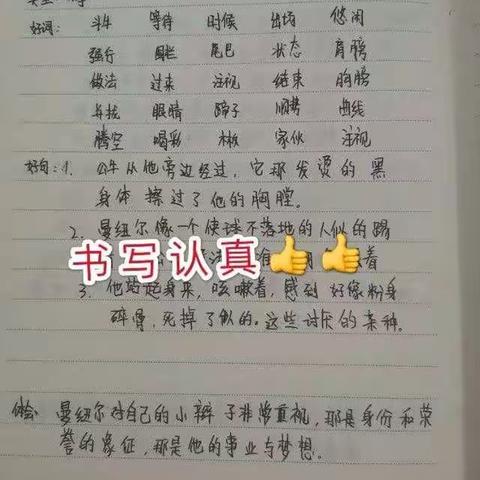 好词: 斗牛 等待 时候 出场 悠闲
强行 围栏 尾巴 状态 肩膀
做法 过来 注视 结束 胸膛
眼睛 蹄子 顺势 曲线
腾空 喝彩 家伙 注视
好句: 1. 公牛从他旁边经过，它那发烫的黑
身体擦过了他的胸膛。
2. 曼纽尔像一个使球不落地的人似的踢
着
书写认真👍👍
3. 他站起身来，咳嗽着，感到好像粉身
碎骨，死掉了似的。这些讨厌的杂种。
体会: 曼纽尔对自己的小辫子非常重视，那是身份和荣
誉的象征，那是他的事业与梦想。